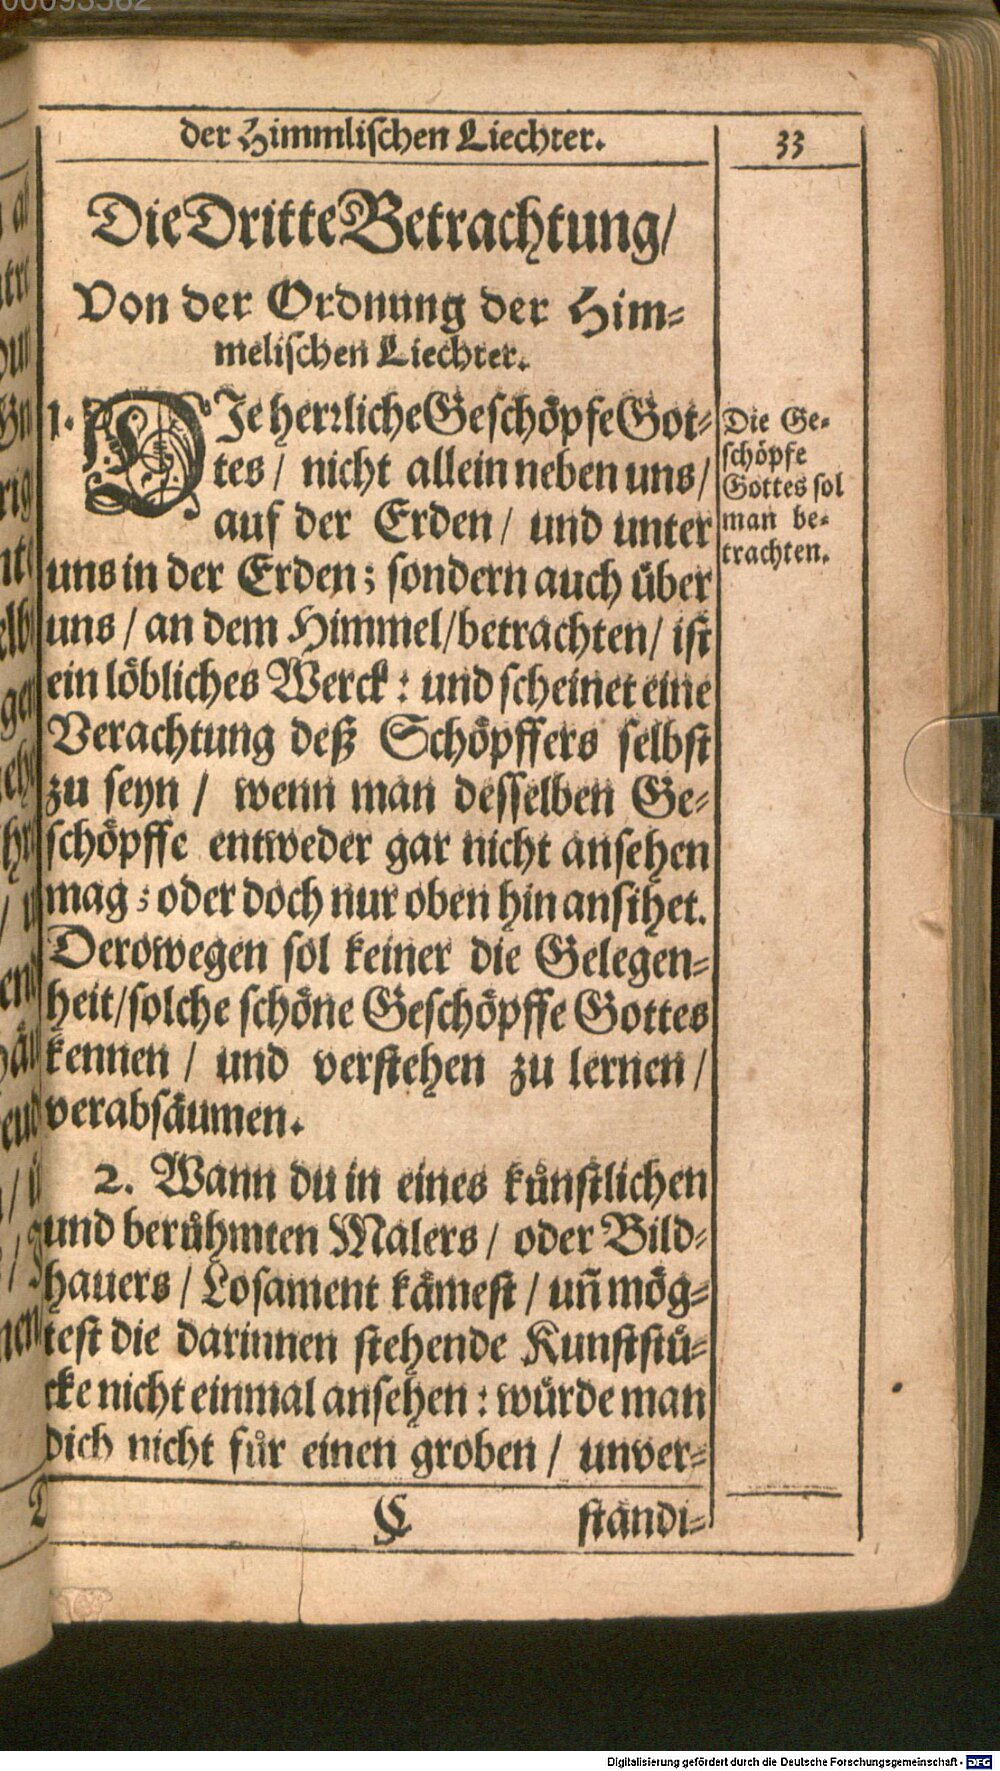 der Himmlischen Liechter.
33
Die Dritte Betrachtung/
Von der Ordnung der Him-
melischen Liechter.
1. DJe herꝛliche Geschöpfe Got-
tes / nicht allein neben uns/
auf der Erden / und unter
uns in der Erden; sondern auch über
uns / an dem Himmel/betrachten/ ist
ein löbliches Werck: und scheinet eine
Verachtung deß Schöpffers selbst
zu seyn / wenn man desselben Ge-
schöpffe entweder gar nicht ansehen
mag; oder doch nur oben hin ansihet.
Derowegen sol keiner die Gelegen-
heit/solche schöne Geschöpffe Gottes
kennen / und verstehen zu lernen /
verabsäumen.
2. Wann du in eines künstlichen
und berühmten Malers / oder Bild-
hauers / Losament kämest / uñ mög-
test die darinnen stehende Kunststü-
cke nicht einmal ansehen: würde man
dich nicht für einen groben / unver-
C ständi-
Die Ge-
schöpfe
Gottes sol
man be-
trachten.
Digitalisierung gefördert durch die Deutsche Forschungsgemeinschaft - DFG